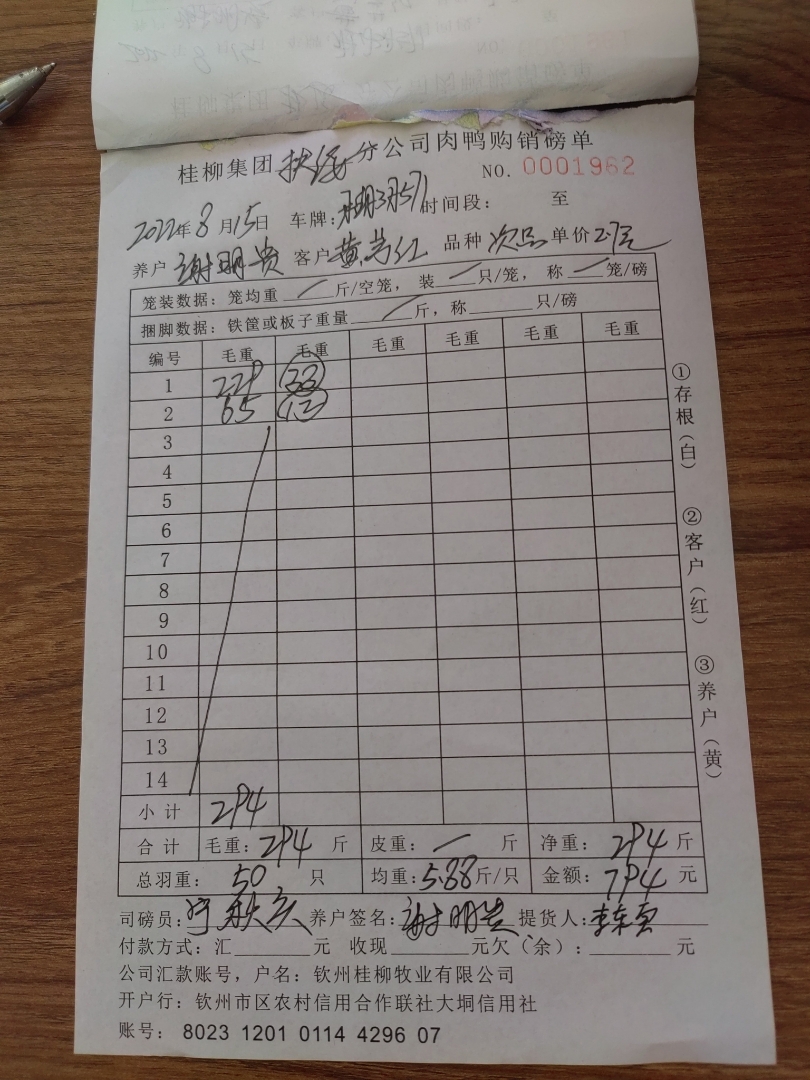 桂柳集团扶绥分公司肉鸭购销磅单
NO. 0001962
2022年8月15日 车牌: 时间段: 至
养户谢明贵 客户黄 红 品种次品单价2.7元
笼装数据: 笼均重 / 斤/空笼, 装 / 只/笼, 称 / 笼/磅
捆脚数据: 铁筐或板子重量 / 斤, 称 只/磅
编号 毛重 毛重 毛重 毛重 毛重 毛重
1 229 (33)
2 65
3
4
5
6
7
8
9
10
11
12
13
14
小计 294
合计 毛重: 294 斤 皮重: / 斤 净重: 294 斤
总羽重: 50 只 均重: 5.88斤/只 金额: 794 元
司磅员: 养户签名: 谢明贵 提货人:
付款方式: 汇 元 收现 元欠(余): 元
公司汇款账号, 户名: 钦州桂柳牧业有限公司
开户行: 钦州市区农村信用合作联社大垌信用社
账号: 8023 1201 0114 4296 07
①存根(白)
②客户(红)
③养户(黄)